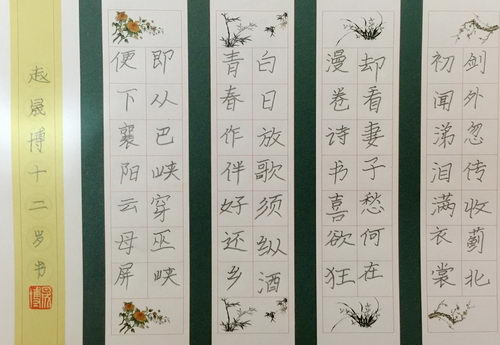 剑外忽传收蓟北
初闻涕泪满衣裳
却看妻子愁何在
漫卷诗书喜欲狂
白日放歌须纵酒
青春作伴好还乡
即从巴峡穿巫峡
便下襄阳云母屏
赵晟博十二岁书